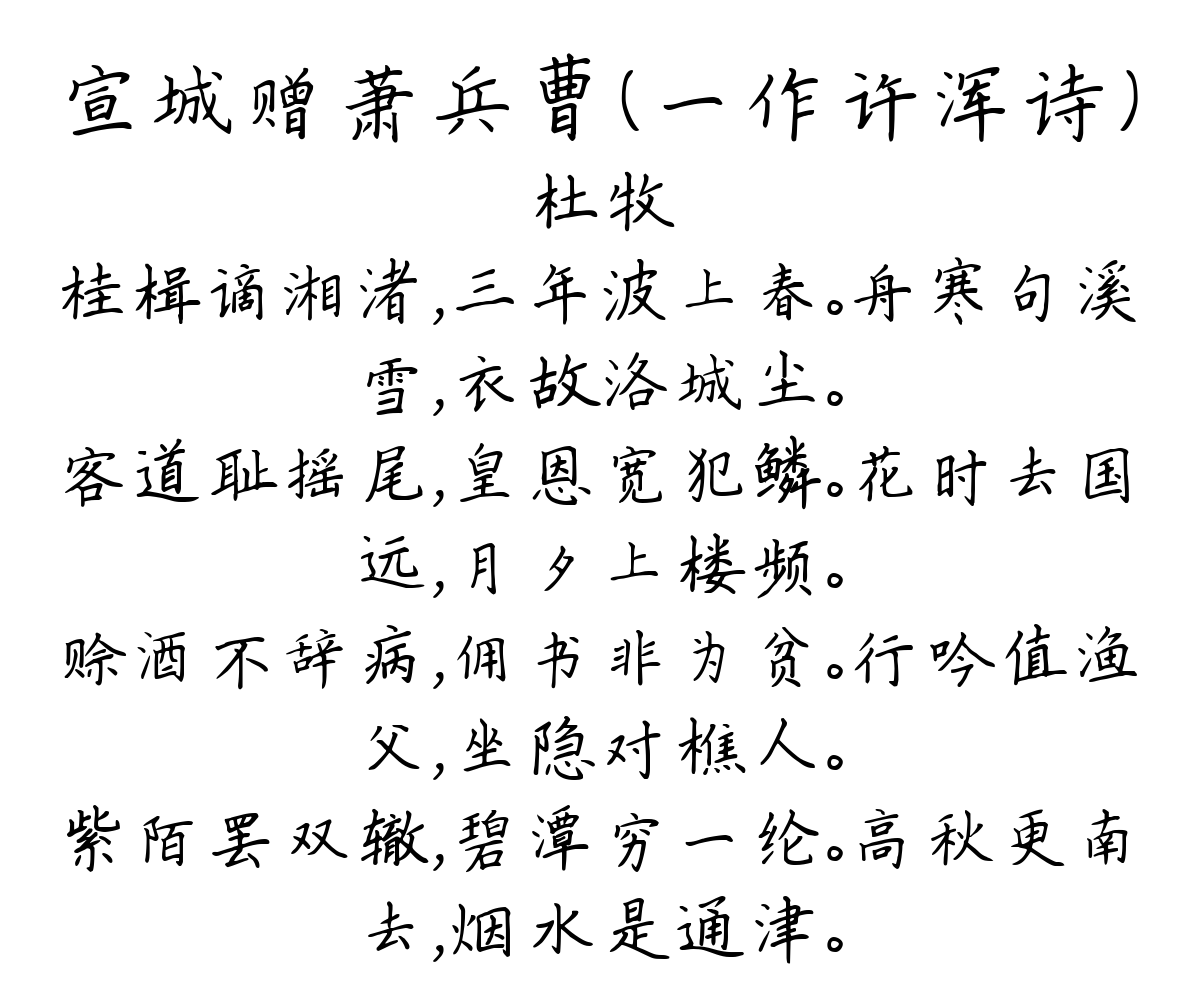 宣城赠萧兵曹(一作许浑诗)
杜牧
桂楫谪湘渚,三年波上春。舟寒句溪
雪,衣故洛城尘。
客道耻摇尾,皇恩宽犯鳞。花时去国
远,月夕上楼频。
赊酒不辞病,佣书非为贫。行吟值渔
父,坐隐对樵人。
紫陌罢双辙,碧潭穷一纶。高秋更南
去,烟水是通津。